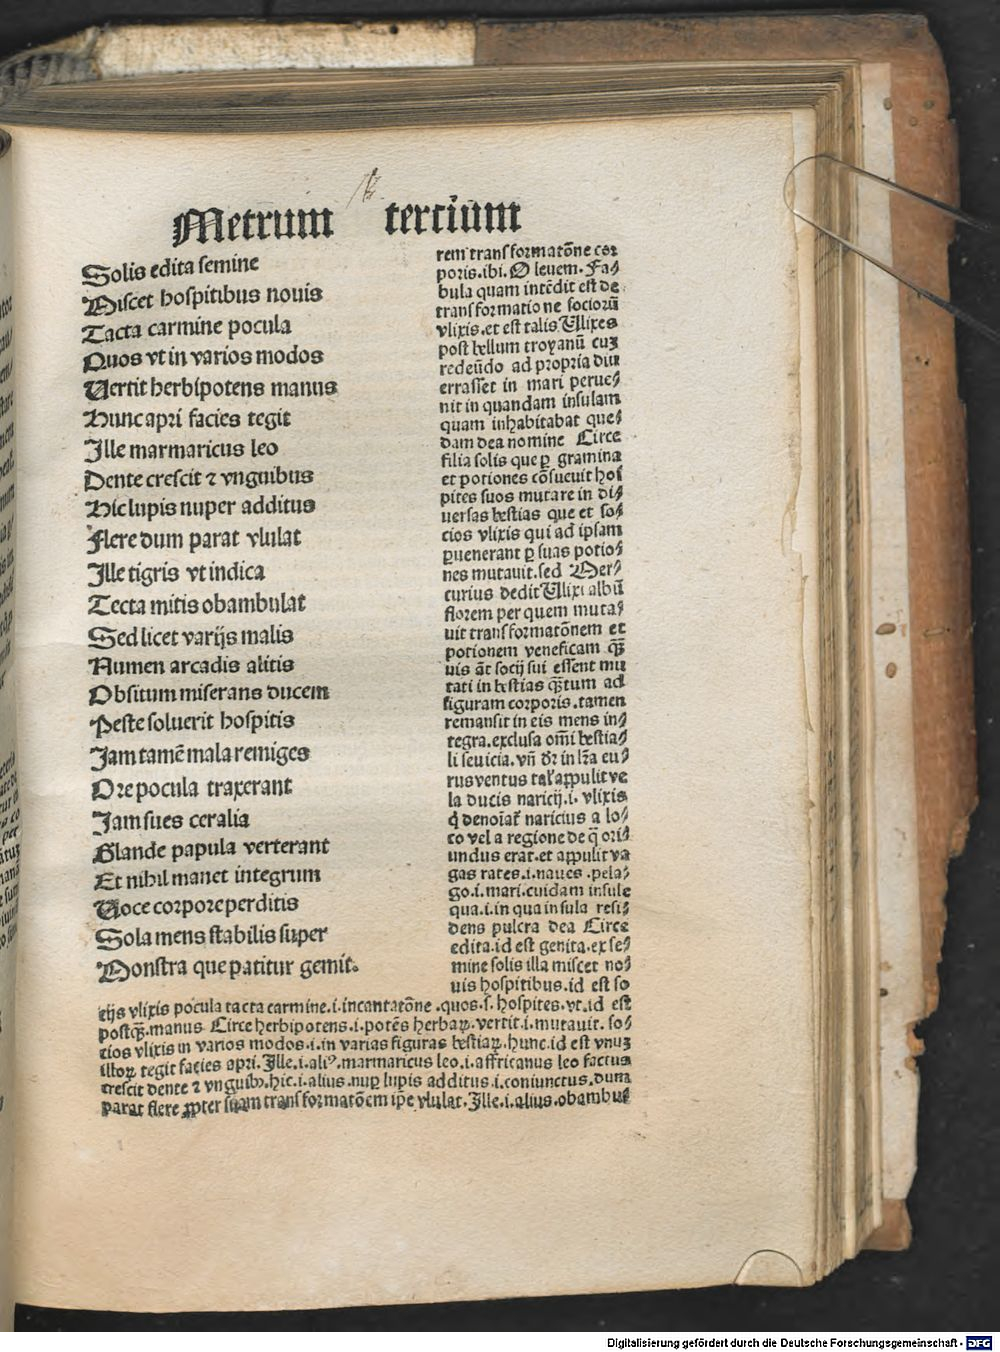 Metrum tercium
Solis edita semine
Miscet hospitibus nouis
Tacta carmine pocula
Quos vt in varios modos
Vertit herbipotens manus
Hunc apri facies tegit
Ille marmaricus leo
Dente crescit ⁊ vnguibus
Hic lupis nuper additus
Flere dum parat vlulat
Ille tigris vt indica
Tecta mitis obambulat
Sed licet varijs malis
Numen arcadis alitis
Obsitum miserans ducem
Peste soluerit hospitis
Jam tamē mala remiges
Ore pocula traxerant
Jam sues ceralia
Glande papula verterant
Et nihil manet integrum
Voce corpore perditis
Sola mens stabilis super
Monstra que patitur gemit.
rem transformatōne cor
poris.ibi. O leuem. Fa/
bula quam intēdit est de
transformatione sociorū
vlixis.et est talis Vlixes
post bellum troyanū cuʒ
redeūdo ad propria diu
errasset in mari perue/
nit in quandam insulam
quam inhabitabat que/
dam dea nomine Circe
filia solis que ꝑ gramina
et potiones cōsueuit hos
pites suos mutare in di/
uersas bestias que et so/
cios vlixis qui ad ipsam
ꝑuenerant ꝑ suas potio/
nes mutauit.sed Mer/
curius dedit Vlixi albū
florem per quem muta/
uit transformatōnem et
potionem veneficam qȝ̄
uis āt socij sui essent mu
tati in bestias qȝ̄tum ad
figuram corporis.tamen
remansit in eis mens in/
tegra.exclusa omī bestia/
li seuicia. vn̄ dr̄ in lr̄a eu/
rus ventus appulit ve
la ducis naricij.i. vlixis
q̇ naricius a lo/
co vel a regione de q̄ ori/
undus erat.et appulit va
gas rates.i.naues.pela/
go.i.mari.cuidam insule
qua.i.in qua insula resi/
dens pulcra dea Circe
edita.id est genita.ex se/
mine solis illa miscet no/
uis hospitibus.id est so
cijs vlixis pocula tacta carmine.i.incantatōne.quos.s.hospites.vt.id est
postqȝ̄.manus Circe herbipotens.i.potēs herbaꝝ.vertit.i.mutauit.so/
cios vlixis in varios modos.i.in varias figuras bestiaꝝ.hunc.id est vnuʒ
illoꝝ tegit facies apri.Ille.i.aliꝰ.marmaricus leo.i.affricanus leo factus
crescit dente ⁊ vnguibȝ.hic.i.alius.nuꝑ lupis additus.i.coniunctus.dum
parat flere ꝓpter suam transformatōem ipe vlulat.Ille.i.alius.obambu/
Digitalisierung gefördert durch die Deutsche Forschungsgemeinschaft - DFG